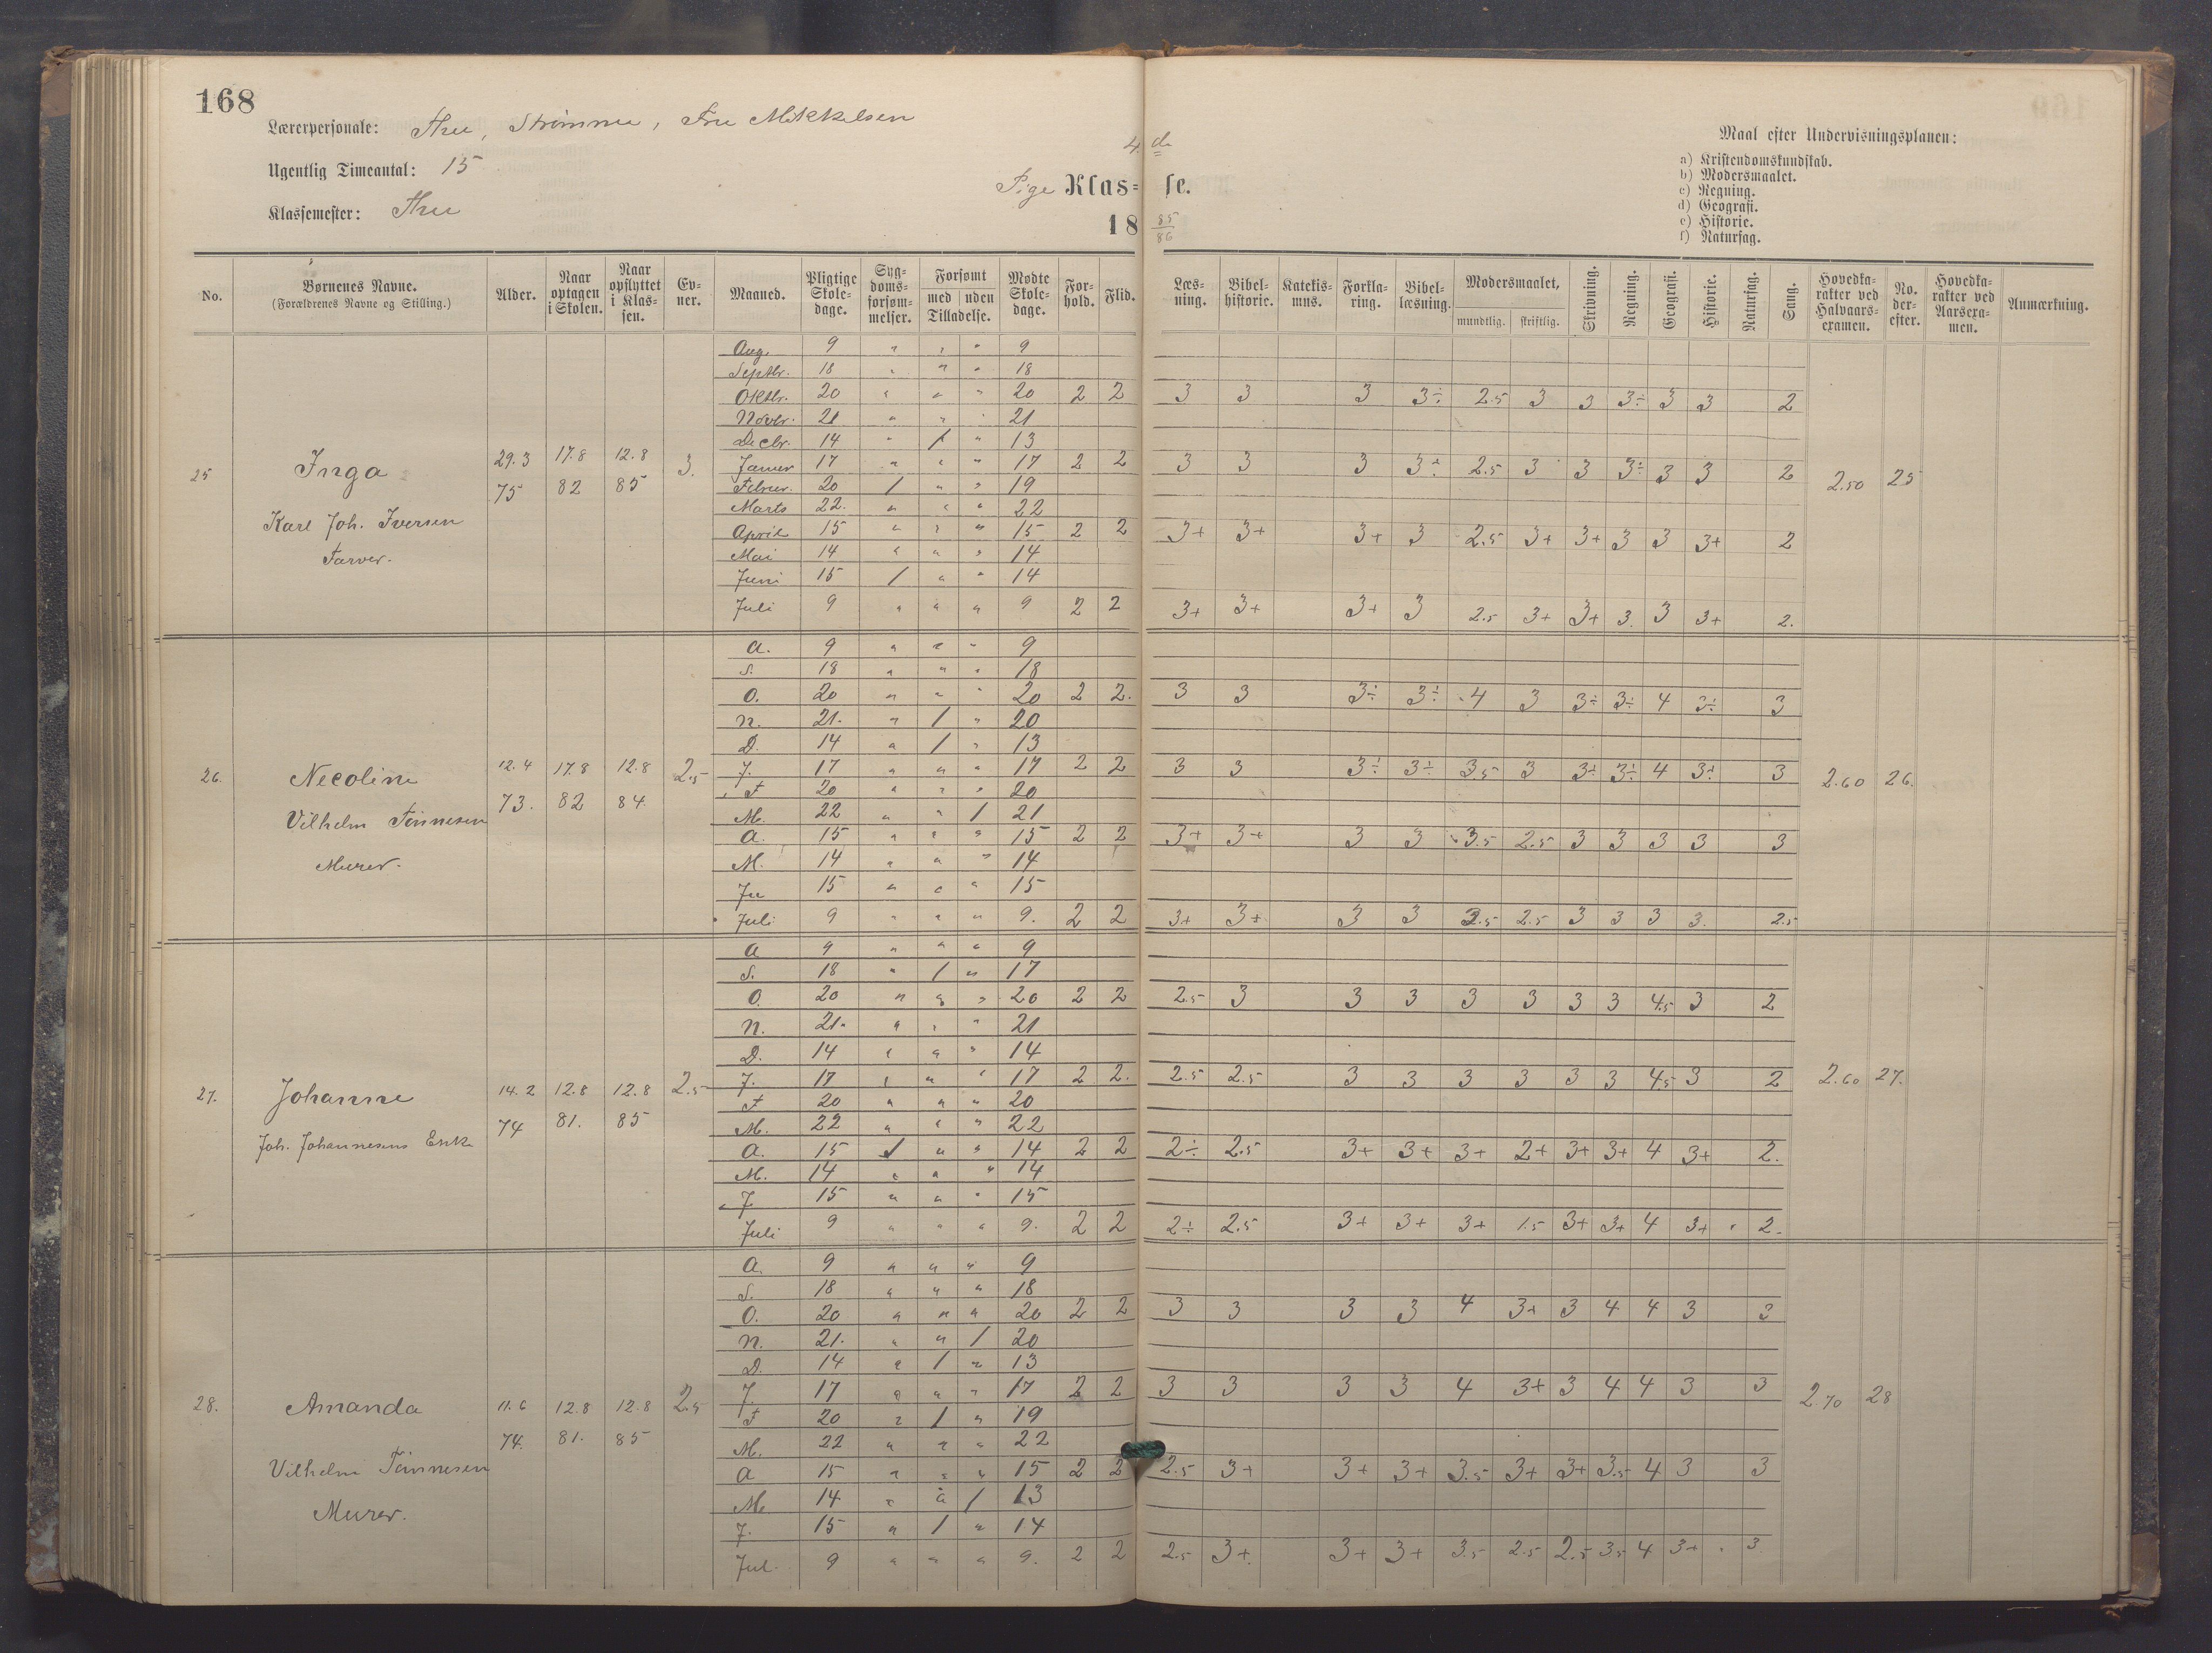 168
Lærerpersonale: Thu, Strømme, Fru Mikkelsen
4de
Maal efter Undervisningsplanen:
Ugentlig Timeantal: 15
Pige Klas- se.
a) Kristendomskundskab.
b) Modersmaalet.
c) Regning.
d) Geografi.
e) Historie.
f) Naturfag.
Klassemester: Thu
18 85/86
No. Børnenes Navne. (Forældrenes Navne og Stilling.) Alder. Naar optagen i Skolen. Naar opflyttet i Klassen. Evner. Maaned. Pligtige Skoledage. Sygdomsforsømmelser. Forsømt med uden Tilladelse. Mødte Skoledage. Forhold. Flid. Læsning. Bibelhistorie. Katekismus. Forklaring. Bibellæsning. Modersmaalet, mundtlig. skriftlig. Skrivning. Regning. Geografi. Historie. Naturfag. Sang. Hovedkarakter ved Halvaarsexamen. No. derefter. Hovedkarakter ved Aarsexamen. Anmærkning.
25 Inga Karl Joh. Iversen Farver. 29.3 75 17.8 82 12.8 85 3. 2.50 25
Aug. 9 " " " 9
Septbr. 18 " " " 18
Oktbr. 20 " " " 20 2 2 3 3 3 3÷ 2.5 3 3 3÷ 3 3 2
Novbr. 21 " " " 21
Decbr. 14 " / " 13
Januar 17 " " " 17 2 2 3 3 3 3÷ 2.5 3 3 3÷ 3 3 2
Februar. 20 / " " 19
Marts 22. " " " 22
April 15 " " " 15 2 2 3+ 3+ 3+ 3 2.5 3+ 3+ 3 3 3+ 2
Mai 14 " " " 14
Juni 15 / " " 14
Juli 9 " " " 9 2 2 3+ 3+ 3+ 3 2.5 3+ 3+ 3. 3 3+ 2.
26. Necoline Vilhelm Tønnesen Murer. 12.4 73. 17.8 82 12.8 84. 2.5 2.60 26.
A. 9 " " " 9
S. 18 " " " 18
O. 20 " " " 20 2 2. 3 3 3÷ 3÷ 4 3 3÷ 3÷ 4 3÷ 3
N. 21. " / " 20
D. 14 " / " 13
J. 17 " " " 17 2 2 3 3 3÷ 3÷ 3.5 3 3÷ 3÷ 4 3÷ 3
F 20 " " " 20
M. 22 " " / 21
A. 15 " " " 15 2 2 3+ 3+ 3 3 3.5 2.5 3 3 3 3 3
M. 14 " " " 14
Ju 15 " " " 15
Juli 9 " " " 9. 2 2 3+ 3+ 3 3 3.5 2.5 3 3 3 3. 2.5
27. Johanne Joh. Johannesens Enke 14.2 74 12.8 81. 12.8 85 2.5 2.60 27.
A 9 " " " 9
S. 18 " / " 17
O. 20 " " " 20 2 2 2.5 3 3 3 3 3 3 3 4.5 3 2
N. 21. " " " 21
D. 14 " " " 14
J. 17 " " " 17 2 2. 2.5 2.5 3 3 3 3 3 3 4.5 3 2
F 20 " " " 20
M. 22 " " " 22
A. 15 / " " 14 2 2 2÷ 2.5 3+ 3+ 3+ 2+ 3+ 3+ 4 3+ 2.
M. 14 " " " 14
J 15 " " " 15
Juli 9 " " " 9. 2 2 2÷ 2.5 3+ 3+ 3+ 1.5 3+ 3+ 4 3+ 2.
28. Amanda Vilhelm Tønnesen Murer. 11.6 74. 12.8 81. 12.8 85 2.5 2.70 28
A. 9 " " " 9
S. 18 " " " 18
O. 20 " " " 20 2 2 3 3 3 3 4 3+ 3 4 4 3 3
N. 21. " " / 20
D. 14 " / " 13
J. 17 " " " 17 2 2 3 3 3 3 4 3+ 3 4 4 3 3
F 20 " / " 19
M. 22 " " " 22
A 15 " " " 15 2 2 2.5 3+ 3+ 3+ 3.5 3+ 3+ 3.5 4 3 3
M. 14 " " / 13
J. 15 " / " 14
Jul. 9 " " " 9. 2 2 2.5 3+ 3+ 3+ 3.5 2.5 2.5 3.5 4 3+ 3.